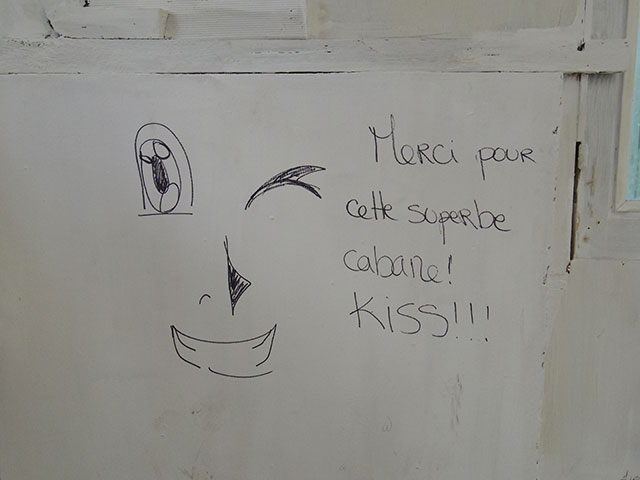 Merci pour
cette superbe
cabane!
Kiss!!!